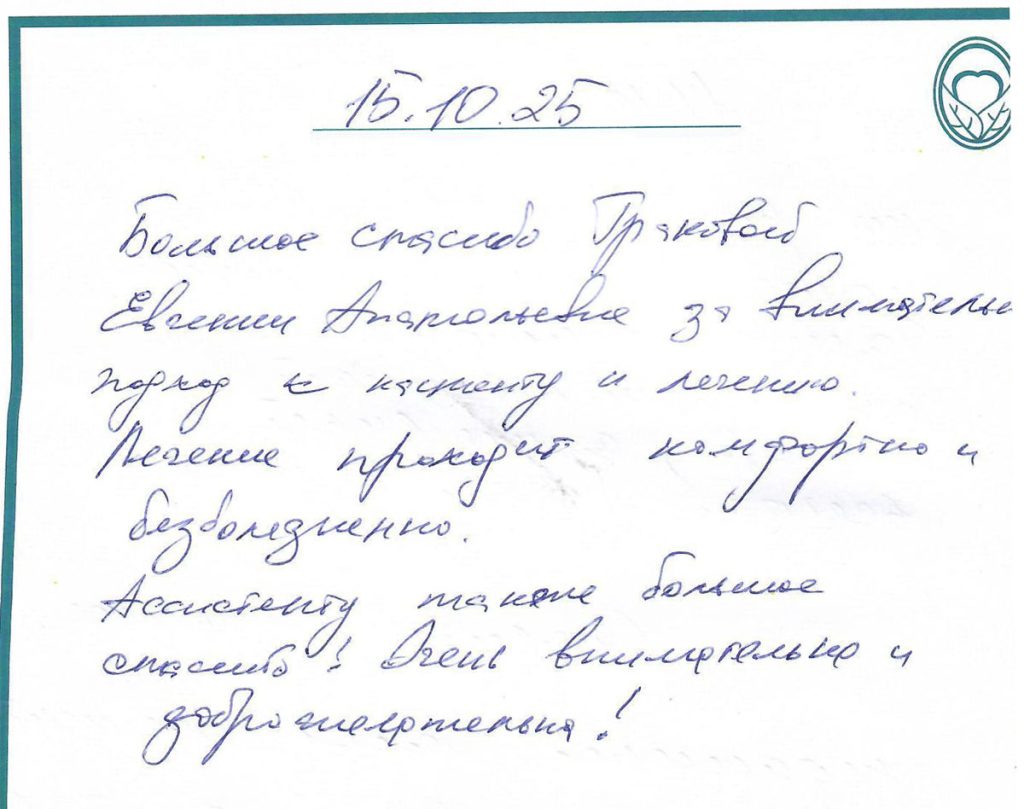 15.10.25
Большое спасибо Граковой
Евгении Анатольевне за внимательн
подход к пациенту и лечению.
Лечение проходит комфортно и
безболезненно.
Ассистенту также большое
спасибо! Очень внимательна и
доброжелательна!